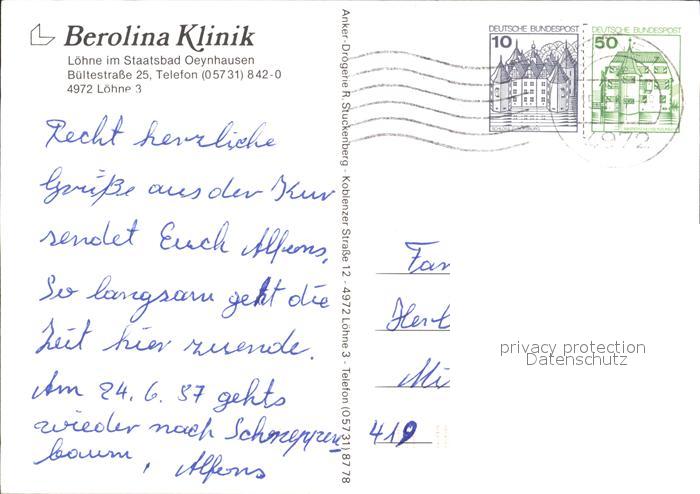 Berolina Klinik
Löhne im Staatsbad Oeynhausen
Bültestraße 25, Telefon (05731) 842-0
4972 Löhne 3
Recht herzliche
Grüße aus der Kur
sendet Euch Alfons,
So langsam geht die
Zeit hier zuende.
Am 24. 6. 87 gehts
wieder nach Schneppen
baum, Alfons
Anker-Drogerie R. Stuckenberg - Koblenzer Straße 12 - 4972 Löhne 3 - Telefon (05731) 87 78
DEUTSCHE BUNDESPOST
10
DEUTSCHE BUNDESPOST
50
4972
Fam
Herb
Mi
419
privacy protection
Datenschutz